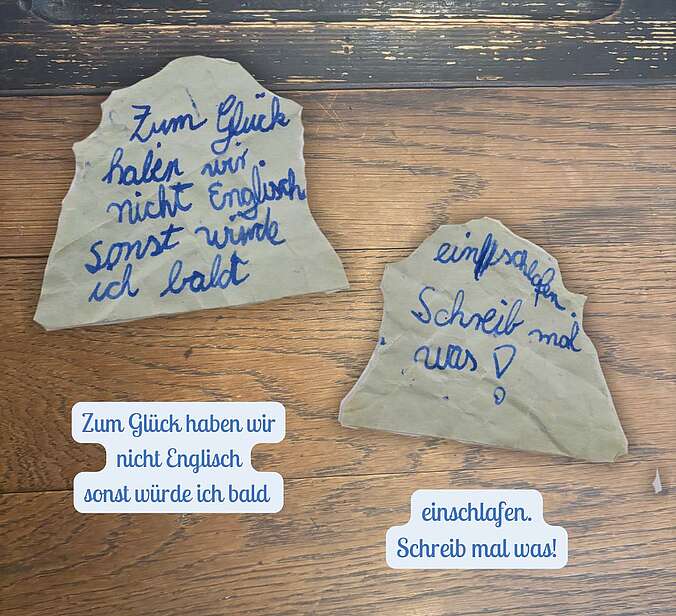 Zum Glück
haben wir
nicht Englisch
sonst würde
ich baldt
einschlafen.
Schreib mal
was!
Zum Glück haben wir
nicht Englisch
sonst würde ich bald
einschlafen.
Schreib mal was!